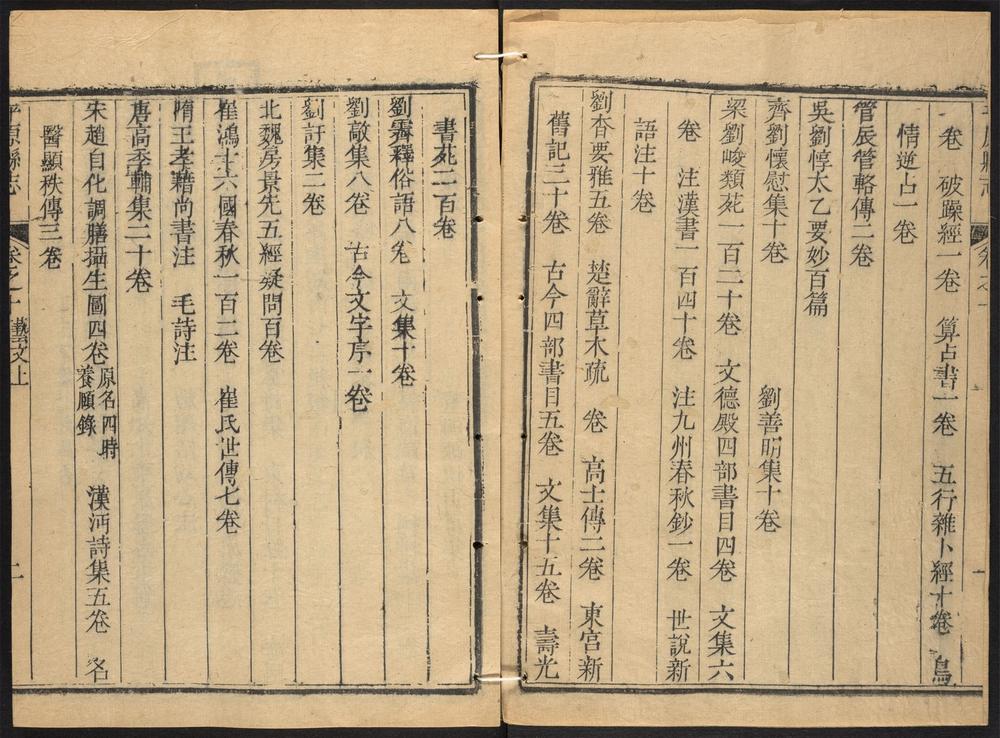 卷　破躁經一卷　算占書一卷　五行雜卜經十卷　鳥
情逆占一卷
管辰管輅傳二卷
吳劉惇太乙要妙百篇
齊劉懷慰集十卷　劉善明集十卷
梁劉峻類苑一百二十卷　文德殿四部書目四卷　文集六
卷　注漢書一百四十卷　注九州春秋鈔一卷　世說新
語注十卷
劉杳要雅五卷　楚辭草木疏　卷　高士傳二卷　東宮新
舊記三十卷　古今四部書目五卷　文集十五卷　壽光
書苑二百卷
劉霽釋俗語八卷　文集十卷
劉敲集八卷　古今文字序一卷
劉訏集二卷
北魏房景先五經疑問百卷
崔鴻十六國春秋一百二卷　崔氏世傳七卷
隋王孝籍尚書注　毛詩注
唐高季輔集二十卷
宋趙自化調膳攝生圖四卷原名四時養頤錄　漢沔詩集五卷　名
醫顯秩傳三卷
平原縣志　卷之十藝文上　二